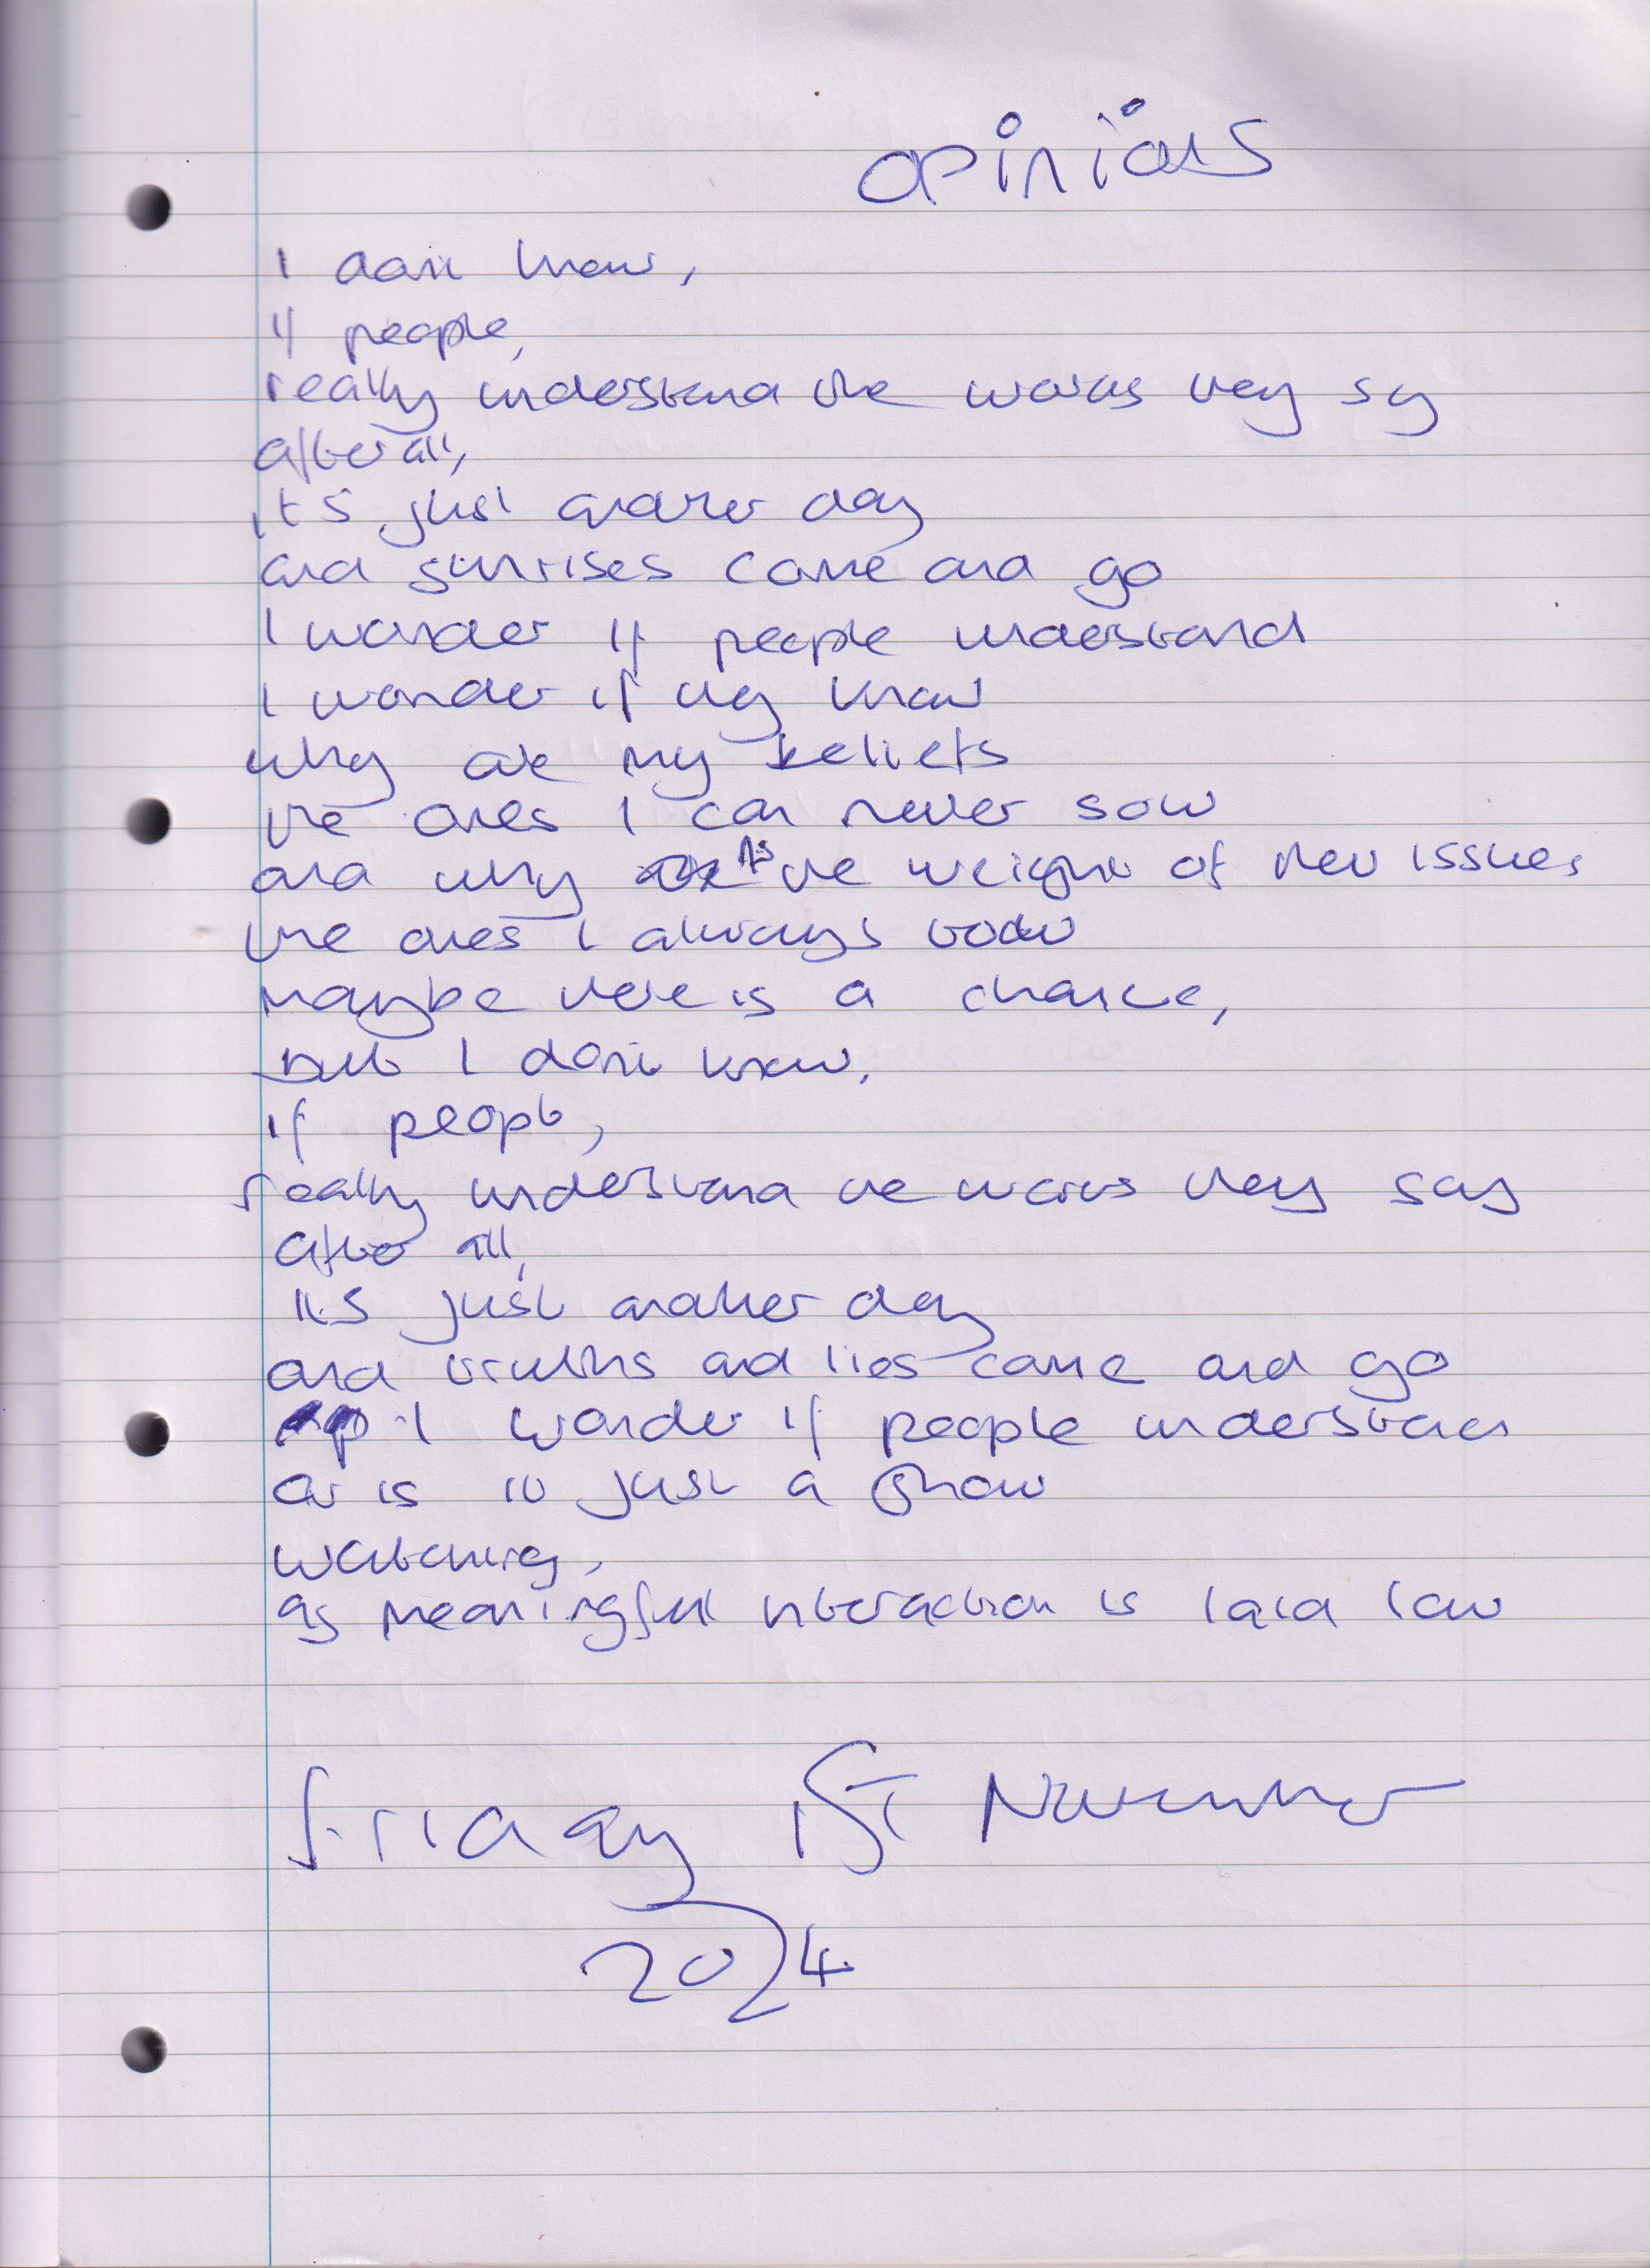 opinions
I don't know,
if people,
really understand the words they say
after all,
it's just another day
and sunrises come and go
I wonder if people understand
I wonder if they know
why are my beliefs
the ones I can never sow
and why is the weight of their issues
the ones I always
maybe there is a chance,
but I don't know,
if people,
really understand the words they say
after all,
it's just another day
and truths and lies come and go
I wonder if people understand
or is it just a show
watching,
as meaningful interaction is laid low
friday 1ST November
2024